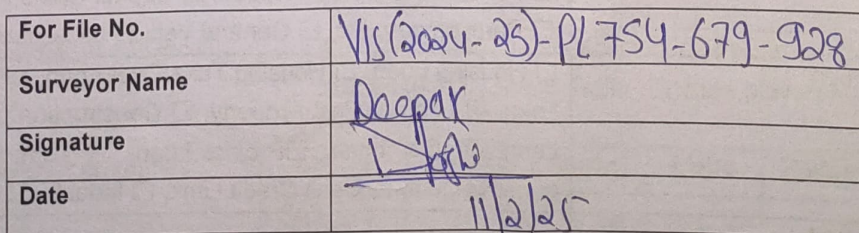 For File No. VIS(2024-25)-PL754-679-928
Surveyor Name Deepak
Signature
Date 11/2/25